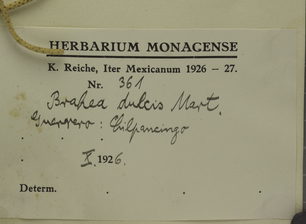 HERBARIUM MONACENSE
K. Reiche, Iter Mexicanum 1926 – 27.
Nr. 361
Brahea dulcis Mart.
Guerrero: Chilpancingo
X. 1926.
Determ.